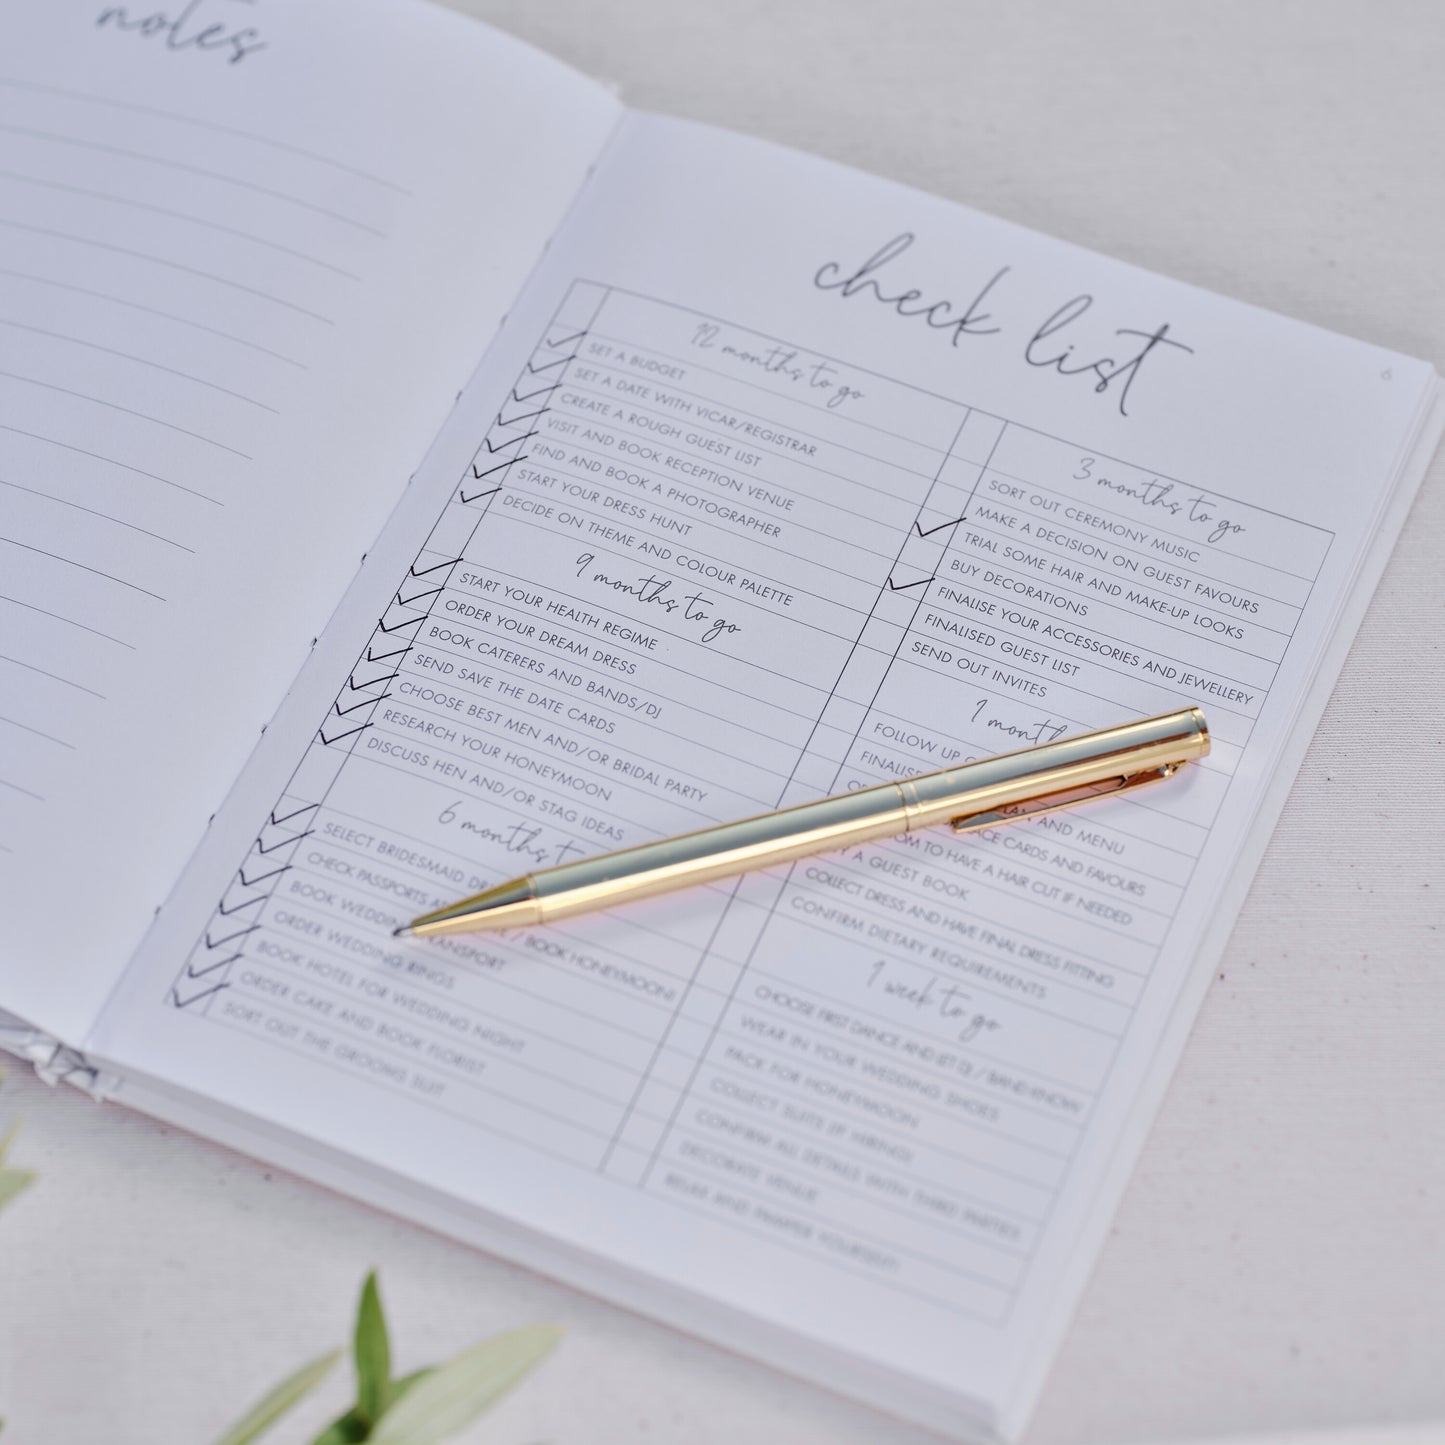 notes
check list
6
12 months to go
SET A BUDGET
SET A DATE WITH VICAR/REGISTRAR
CREATE A ROUGH GUEST LIST
VISIT AND BOOK RECEPTION VENUE
FIND AND BOOK A PHOTOGRAPHER
START YOUR DRESS HUNT
DECIDE ON THEME AND COLOUR PALETTE
9 months to go
START YOUR HEALTH REGIME
ORDER YOUR DREAM DRESS
BOOK CATERERS AND BANDS/DJ
SEND SAVE THE DATE CARDS
CHOOSE BEST MEN AND/OR BRIDAL PARTY
RESEARCH YOUR HONEYMOON
DISCUSS HEN AND/OR STAG IDEAS
6 months
SELECT BRIDESMAID
CHECK PASSPORTS / BOOK HONEYMOON!
BOOK WEDDING TRANSPORT
ORDER WEDDING RINGS
BOOK HOTEL FOR WEDDING NIGHT
ORDER CAKE AND BOOK FLORIST
SORT OUT THE GROOMS SUIT
3 months to go
SORT OUT CEREMONY MUSIC
MAKE A DECISION ON GUEST FAVOURS
TRIAL SOME HAIR AND MAKE-UP LOOKS
BUY DECORATIONS
FINALISE YOUR ACCESSORIES AND JEWELLERY
FINALISED GUEST LIST
SEND OUT INVITES
1 month
FOLLOW UP
FINALISE AND MENU
CARDS AND FAVOURS
TO HAVE A HAIR CUT IF NEEDED
A GUEST BOOK
COLLECT DRESS AND HAVE FINAL DRESS FITTING
CONFIRM DIETARY REQUIREMENTS
1 week to go
CHOOSE FIRST DANCE AND LET DJ / BAND KNOW
WEAR IN YOUR WEDDING SHOES
PACK FOR HONEYMOON
COLLECT SUITS (IF HIRING)
CONFIRM ALL DETAILS WITH THIRD PARTIES
DECORATE VENUE
RELAX AND PAMPER YOURSELF!